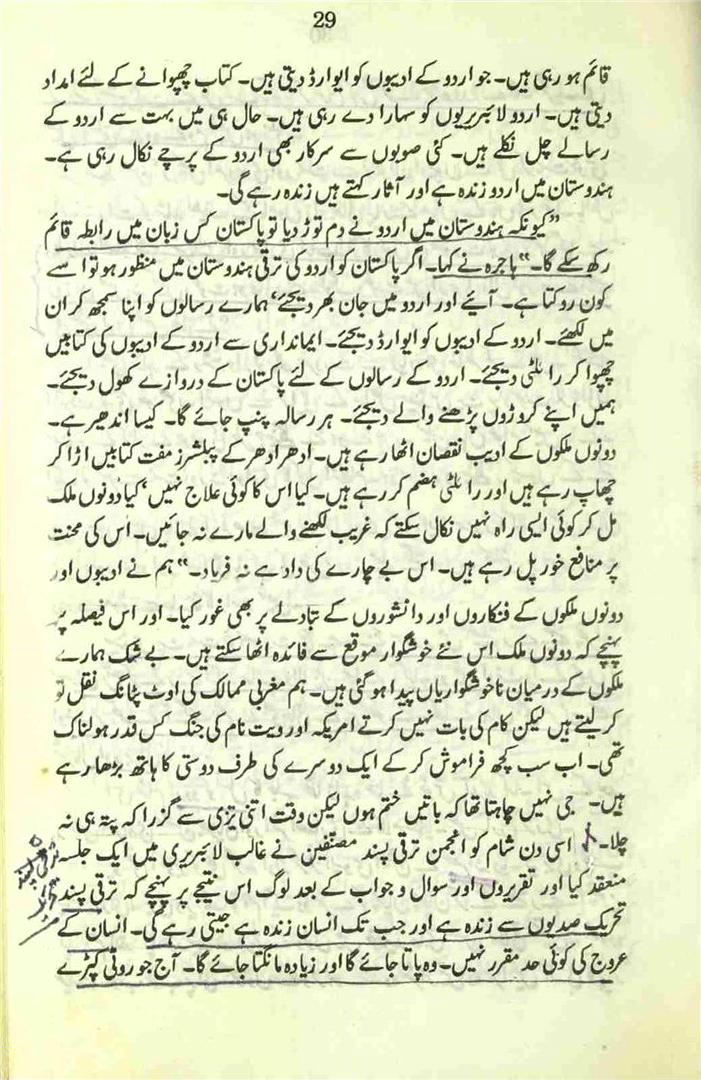 29
قائم ہو رہی ہیں۔ جو اردو کے ادیبوں کو ایوارڈ دیتی ہیں۔ کتاب چھپوانے کے لئے امداد
دیتی ہیں۔ اردو لائبریریوں کو سہارا دے رہی ہیں۔ حال ہی میں بہت سے اردو کے
رسالے چل نکلے ہیں۔ کئی صوبوں سے سرکار بھی اردو کے پرچے نکال رہی ہے۔
ہندوستان میں اردو زندہ ہے اور آثار کہتے ہیں زندہ رہے گی۔
”کیونکہ ہندوستان میں اردو نے دم توڑ دیا تو پاکستان کس زبان میں رابطہ قائم
رکھ سکے گا۔“ ہاجرہ نے کہا۔ اگر پاکستان کو اردو کی ترقی ہندوستان میں منظور ہو تو اسے
کون روکتا ہے۔ آیئے اور اردو میں جان بھر دیجئے‘ ہمارے رسالوں کو اپنا سمجھ کر ان
میں لکھئے۔ اردو کے ادیبوں کو ایوارڈ دیجئے۔ ایمانداری سے اردو کے ادیبوں کی کتابیں
چھپوا کر رائلٹی دیجئے۔ اردو کے رسالوں کے لئے پاکستان کے دروازے کھول دیجئے۔
ہمیں اپنے کروڑوں پڑھنے والے دیجئے۔ ہر رسالہ پنپ جائے گا۔ کیسا اندھیر ہے۔
دونوں ملکوں کے ادیب نقصان اٹھا رہے ہیں۔ ادھر ادھر کے پبلشرز مفت کتابیں اڑا کر
چھاپ رہے ہیں اور رائلٹی ہضم کر رہے ہیں۔ کیا اس کا کوئی علاج نہیں‘ کیا دونوں ملک
مل کر کوئی ایسی راہ نہیں نکال سکتے کہ غریب لکھنے والے مارے نہ جائیں۔ اس کی محنت
پر منافع خور پل رہے ہیں۔ اس بے چارے کی داد ہے نہ فریاد۔“ ہم نے ادیبوں اور
دونوں ملکوں کے فنکاروں اور دانشوروں کے تبادلے پر بھی غور کیا۔ اور اس فیصلہ پر
پہنچے کہ دونوں ملک اس نئے خوشگوار موقع سے فائدہ اٹھا سکتے ہیں۔ بے شک ہمارے
ملکوں کے درمیان ناخوشگواریاں پیدا ہو گئی ہیں۔ ہم مغربی ممالک کی اوٹ پٹانگ نقل تو
کر لیتے ہیں لیکن کام کی بات نہیں کرتے امریکہ اور ویت نام کی جنگ کس قدر ہولناک
تھی۔ اب سب کچھ فراموش کر کے ایک دوسرے کی طرف دوستی کا ہاتھ بڑھا رہے
ہیں۔ جی نہیں چاہتا تھا کہ باتیں ختم ہوں لیکن وقت اتنی تیزی سے گزرا کہ پتہ ہی نہ
چلا۔ اسی دن شام کو انجمن ترقی پسند مصنفین نے غالب لائبریری میں ایک جلسہ
منعقد کیا اور تقریروں اور سوال و جواب کے بعد لوگ اس نتیجے پر پہنچے کہ ترقی پسند
تحریک صدیوں سے زندہ ہے اور جب تک انسان زندہ ہے جیتی رہے گی۔ انسان کے
عروج کی کوئی حد مقرر نہیں۔ وہ پاتا جائے گا اور زیادہ مانگتا جائے گا۔ آج جو روٹی کپڑے